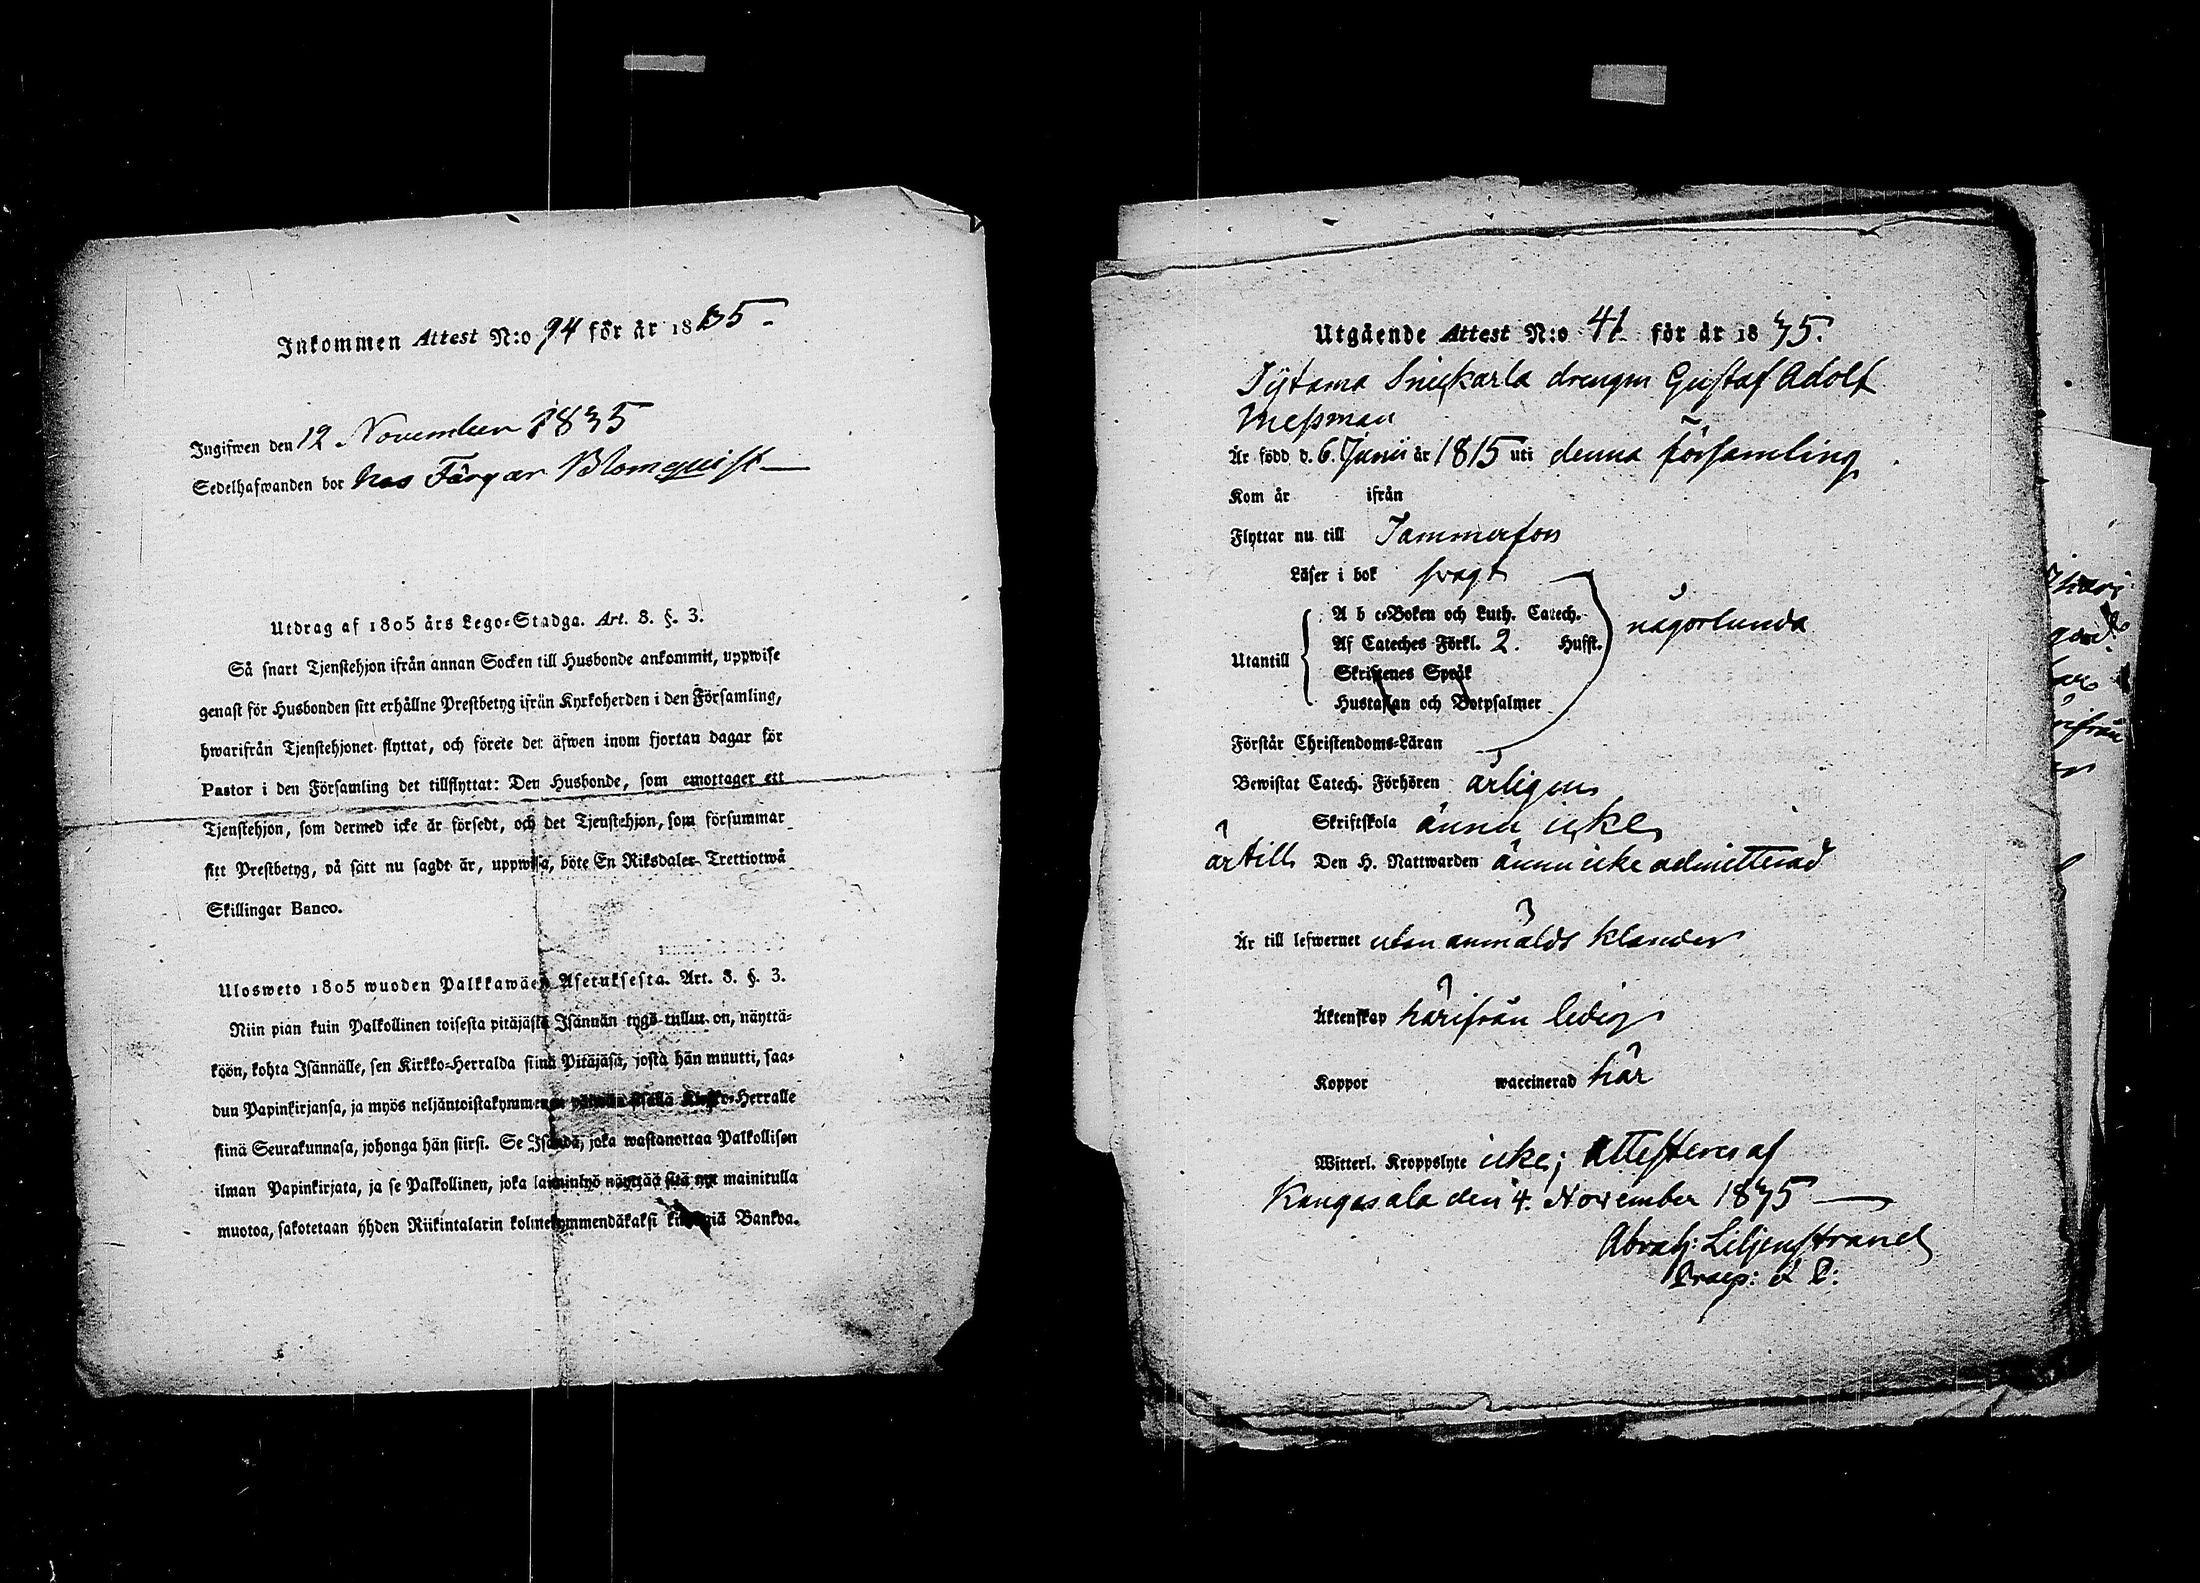 Inkommen Attest N:o 94 för år 1835.
Ingifwen den 12 November 1835
Sedelhafwanden bor hos Färgar Blomquist
Utdrag af 1805 års Lego-Stadga. Art. 8. §. 3.
Så snart Tjenstehjon ifrån annan Socken till Husbonde ankommit, uppwise
genast för Husbonden sitt erhållne Prestbetyg ifrån Kyrkoherden i den Församling,
hwarifrån Tjenstehjonet flyttat, och förete det äfwen inom fjortan dagar för
Pastor i den Församling det tillflyttat: Den Husbonde, som emottager ett
Tjenstehjon, som dermed icke är försedt, och det Tjenstehjon, som försummar
sitt Prestbetyg, på sätt nu sagdt är, uppwisa, böte En Riksdaler Trettiotwå
Skillingar Banco.
Ulosweto 1805 wuoden Palkkawäen Asetuksesta. Art. 8. §. 3.
Niin pian kuin Palkollinen toisesta pitäjästä Isännän tygö tullut on, näyttä-
köön, kohta Isännälle, sen Kirkko-Herralda siinä Pitäjäsä, josta hän muutti, saa-
dun Papinkirjansa, ja myös neljäntoistakymmenen päiwän sisällä Kirkko-Herralle
siinä Seurakunnasa, johonga hän siirsi. Se Isändä, joka wastanottaa Palkollisen
ilman Papinkirjata, ja se Palkollinen, joka laiminlyö näyttää sitä nyt mainitulla
muotoa, sakotetaan yhden Riikintalarin kolmekymmendäkaksi killingiä Bankoa.
Utgående Attest N:o 41 för år 1835.
Gustaf Adolf
Messman
Är född d. 6 Junii år 1815 uti denna församling
Kom år ifrån
Flyttar nu till Tammerfors
Läser i bok svagt
A b c-Boken och Luth. Catech.
Utantill Af Cateches Förkl. 2. Hufst. någorlunda
Skriftenes Språk
Hustaflan och Botpsalmer
Förstår Christendoms-Läran
Bewistat Catech. Förhören årligen
Skriftskola ännu icke
är till Den H. Nattwarden ännu icke admitterad
Är till lefwernet utan anmäldt klander
Äktenskap härifrån ledig
Koppor waccinerad här
Witterl. Kroppslyte icke; attesteras af
Kangasala den 4. November 1835
Abrah: Liljenstrand
Praep: & P: